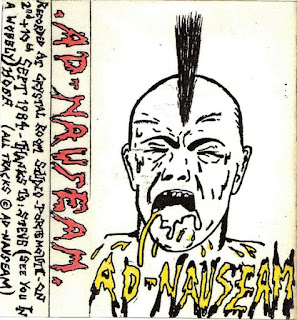 .AD-NAUSEAM.
RECORDED AT CRYSTAL ROOM STUDIO-PORTSMOUTH-ON
SEPT 1984 - THANKS TO STEVE (SEE YOU IN
A (ALL TRACKS © AD-NAUSEAM)
AD-NAUSEAM